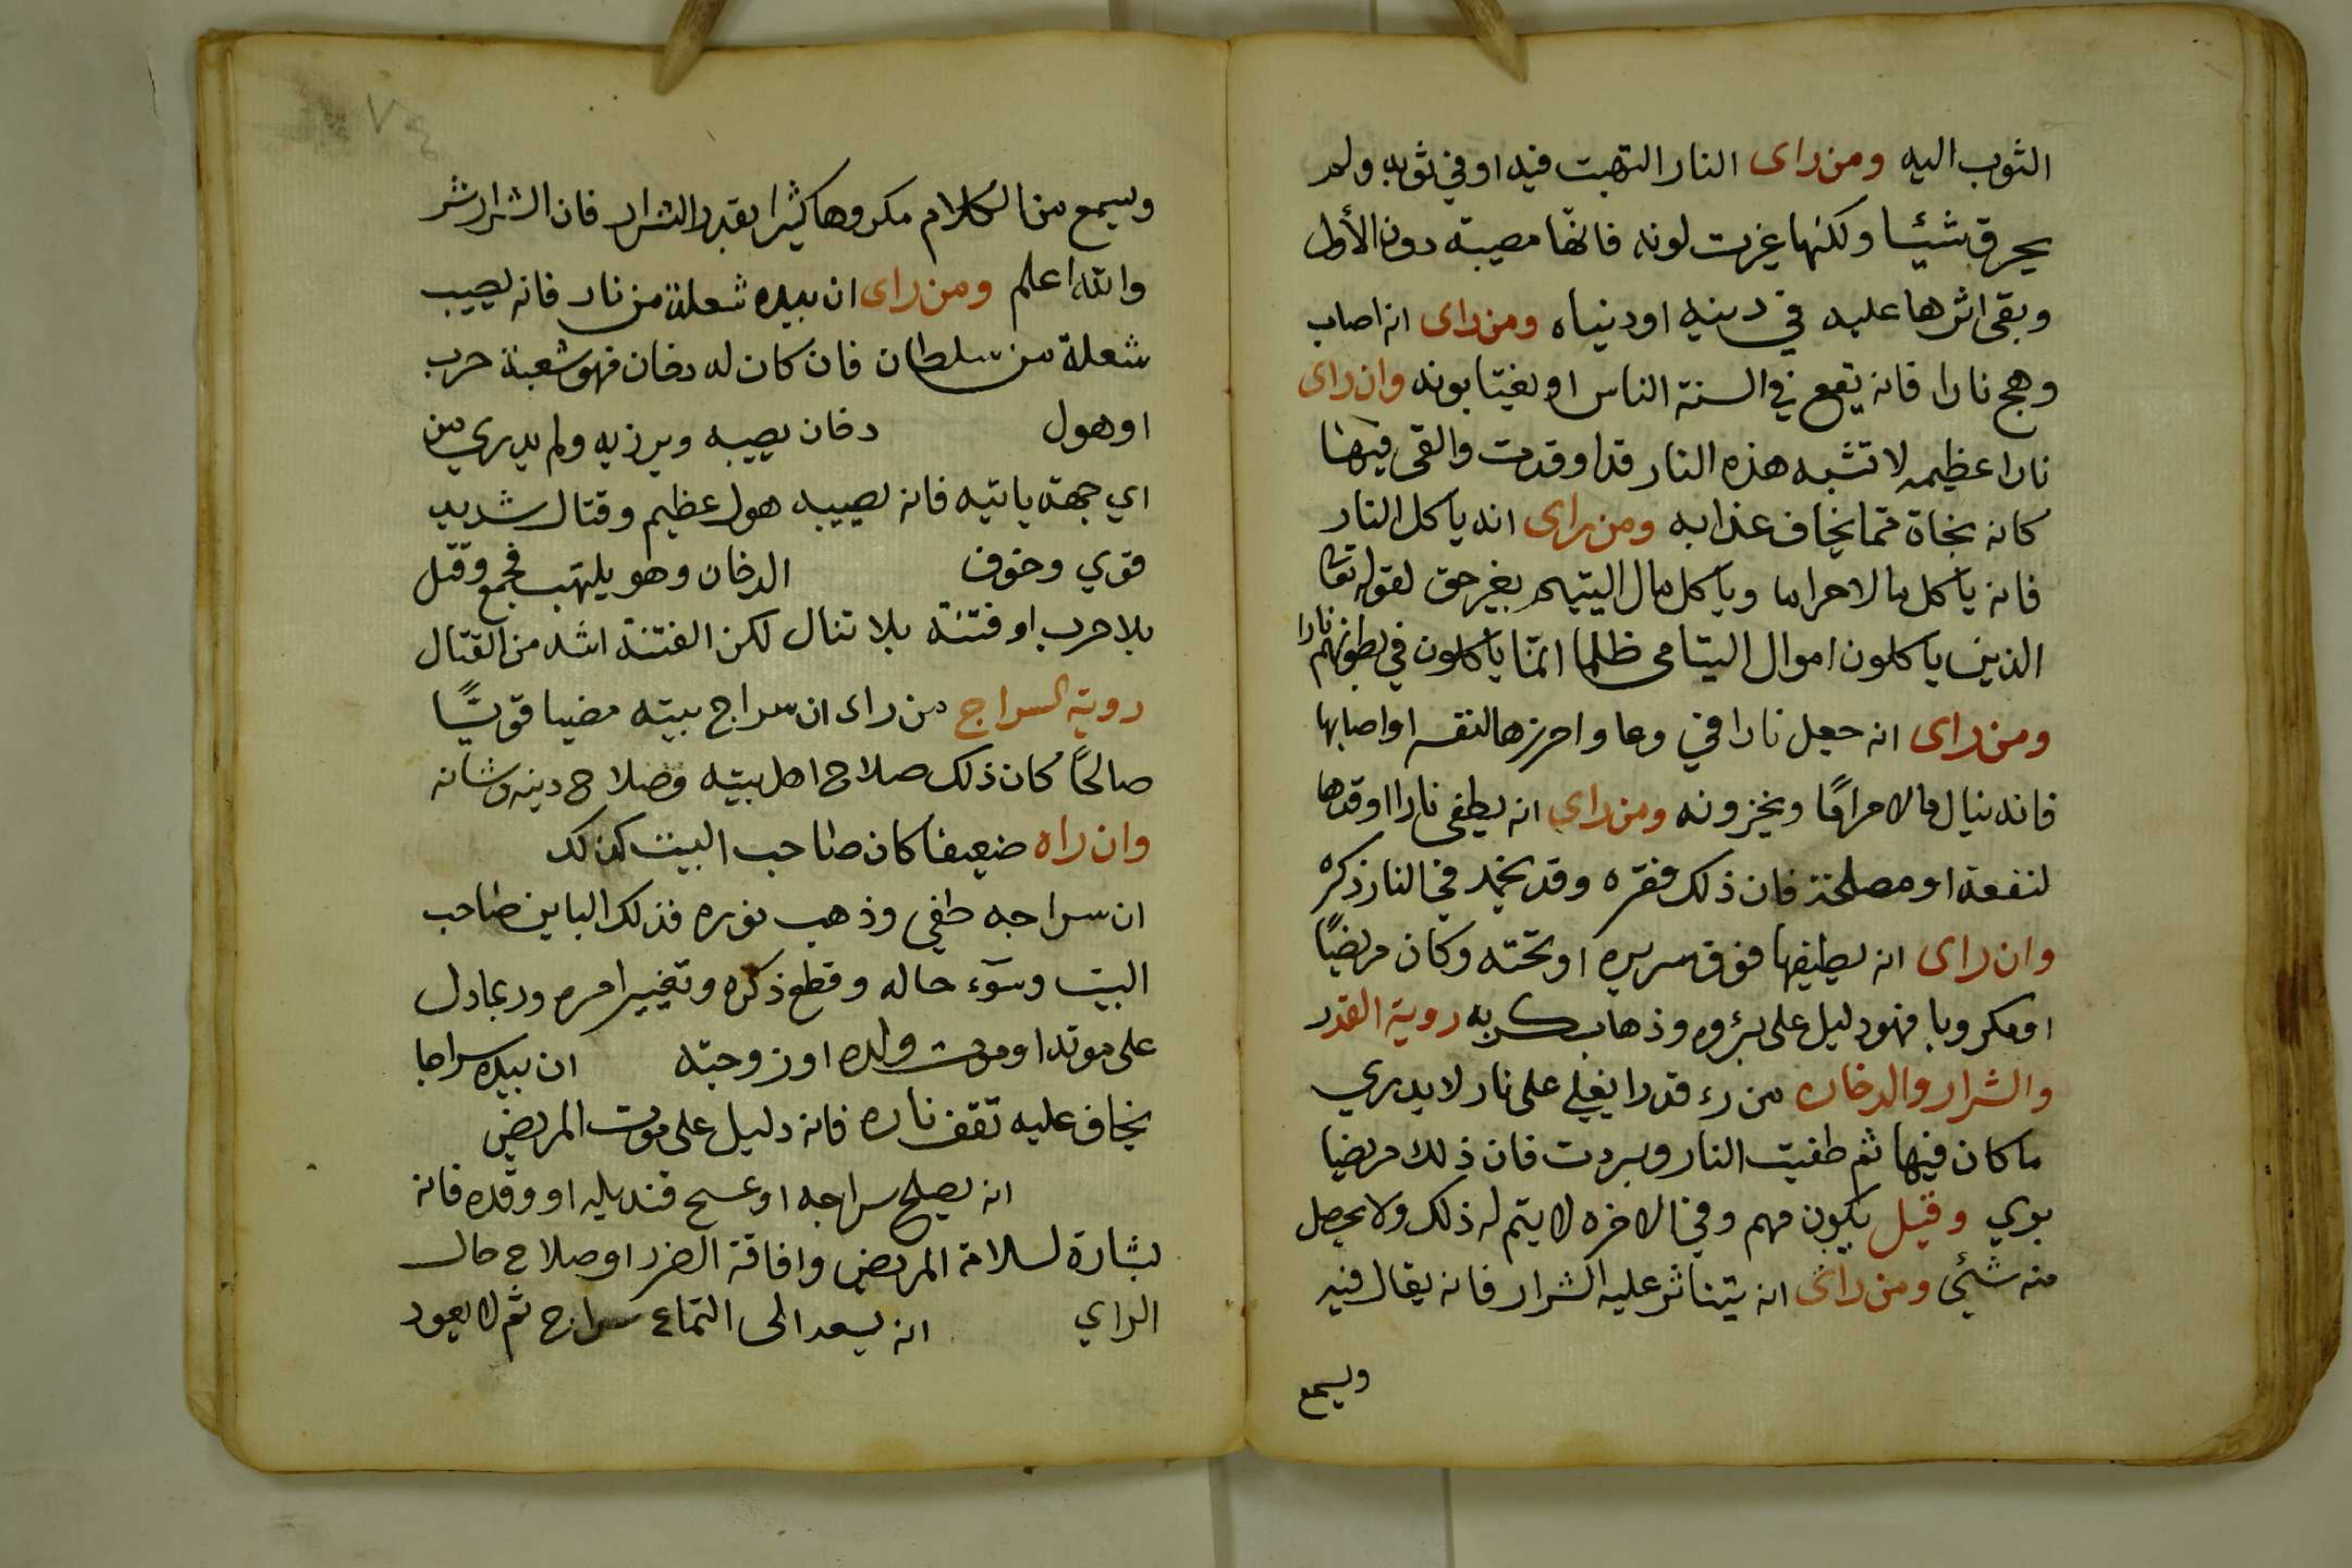 الثوب اليه ومن راى النار التهبت فيه او في ثوبه ولم
يحرق شيئا ولكنها غيرت لونه فانها مصيبة دون الأول
وبقى اثرها عليه في دينه او دنياه ومن راى انه اصاب
وهج نارا فانه يقع في السنة الناس او يغتابونه وان راى
نارا عظيمه لا تشبه هذه النار قد اوقدت والقى فيها
كانه نجاة مما يخاف عذابه ومن راى انه ياكل النار
فانه ياكل مالا حراما وياكل مال اليتيم بغير حق لقوله تعا
الذين ياكلون اموال اليتامى ظلما انمّا ياكلون في بطونهم نارا
ومن راى انه جعل نارا في وعا واحرزها لنفسه او اصابها
فانه ينال مالا حرامًا ويخزونه ومن راي انه يطفى نارا اوقدها
لنفعة او مصلحة فان ذلك فقره وقد يخمد في النار ذكره
وان راى انه يطفيها فوق سريره او تحته وكان مريضًا
او مكروبا فهو دليل على برؤه وذهاب كربه روية القدر
والشرار والدخان من رء قدرا يغلي على نار لا يدري
ما كان فيها ثم طفيت النار وبردت فان ذلك مريضيا
بوي وقيل يكون مهم وفي الاخره لا يتم له ذلك ولا يحصل
منه شئي ومن راى انه يتناثر عليه الشرار فانه يقال فيه
ويسمع
ويسمع من الكلام مكروها كثيرا بقدر الشرار فان الشرار شر
والله اعلم ومن راى ان بيده شعلة من نار فانه يصيب
شعلة من سلطان فان كان له دخان فهو شعبة حرب
او هول دخان يصيبه ويرزيه ولم يدري من
اي جهة ياتيه فانه يصيبه هول عظيم وقتال شديد
قوي وخوف الدخان وهو يلتهب فجمع وقتل
بلا حرب او فتنة بلا تنال لكن الفتنة اشد من القتال
روية السراج من راى ان سراج بيته مضيا قويًّا
صالحًا كان ذلك صلاح اهل بيته وصلاح دينه وشانه
وان راه ضعيفا كان صاحب البيت كذلك
ان سراجه طفي وذهب نوره فذلك الباين صاحب
البيت وسوء حاله وقطع ذكره وتغيير امره وربما دل
على موته او موت ولده او زوجته ان بيده سراجا
يخاف عليه تقف ناره فانه دليل على موت المريض
انه يصلح سراجه او عسح قنديله او وقده فانه
بشارة لسلامة المريض وافاقة الضرر او صلاح حال
الراي انه يسعد الى التماع سراج ثم لا يعود